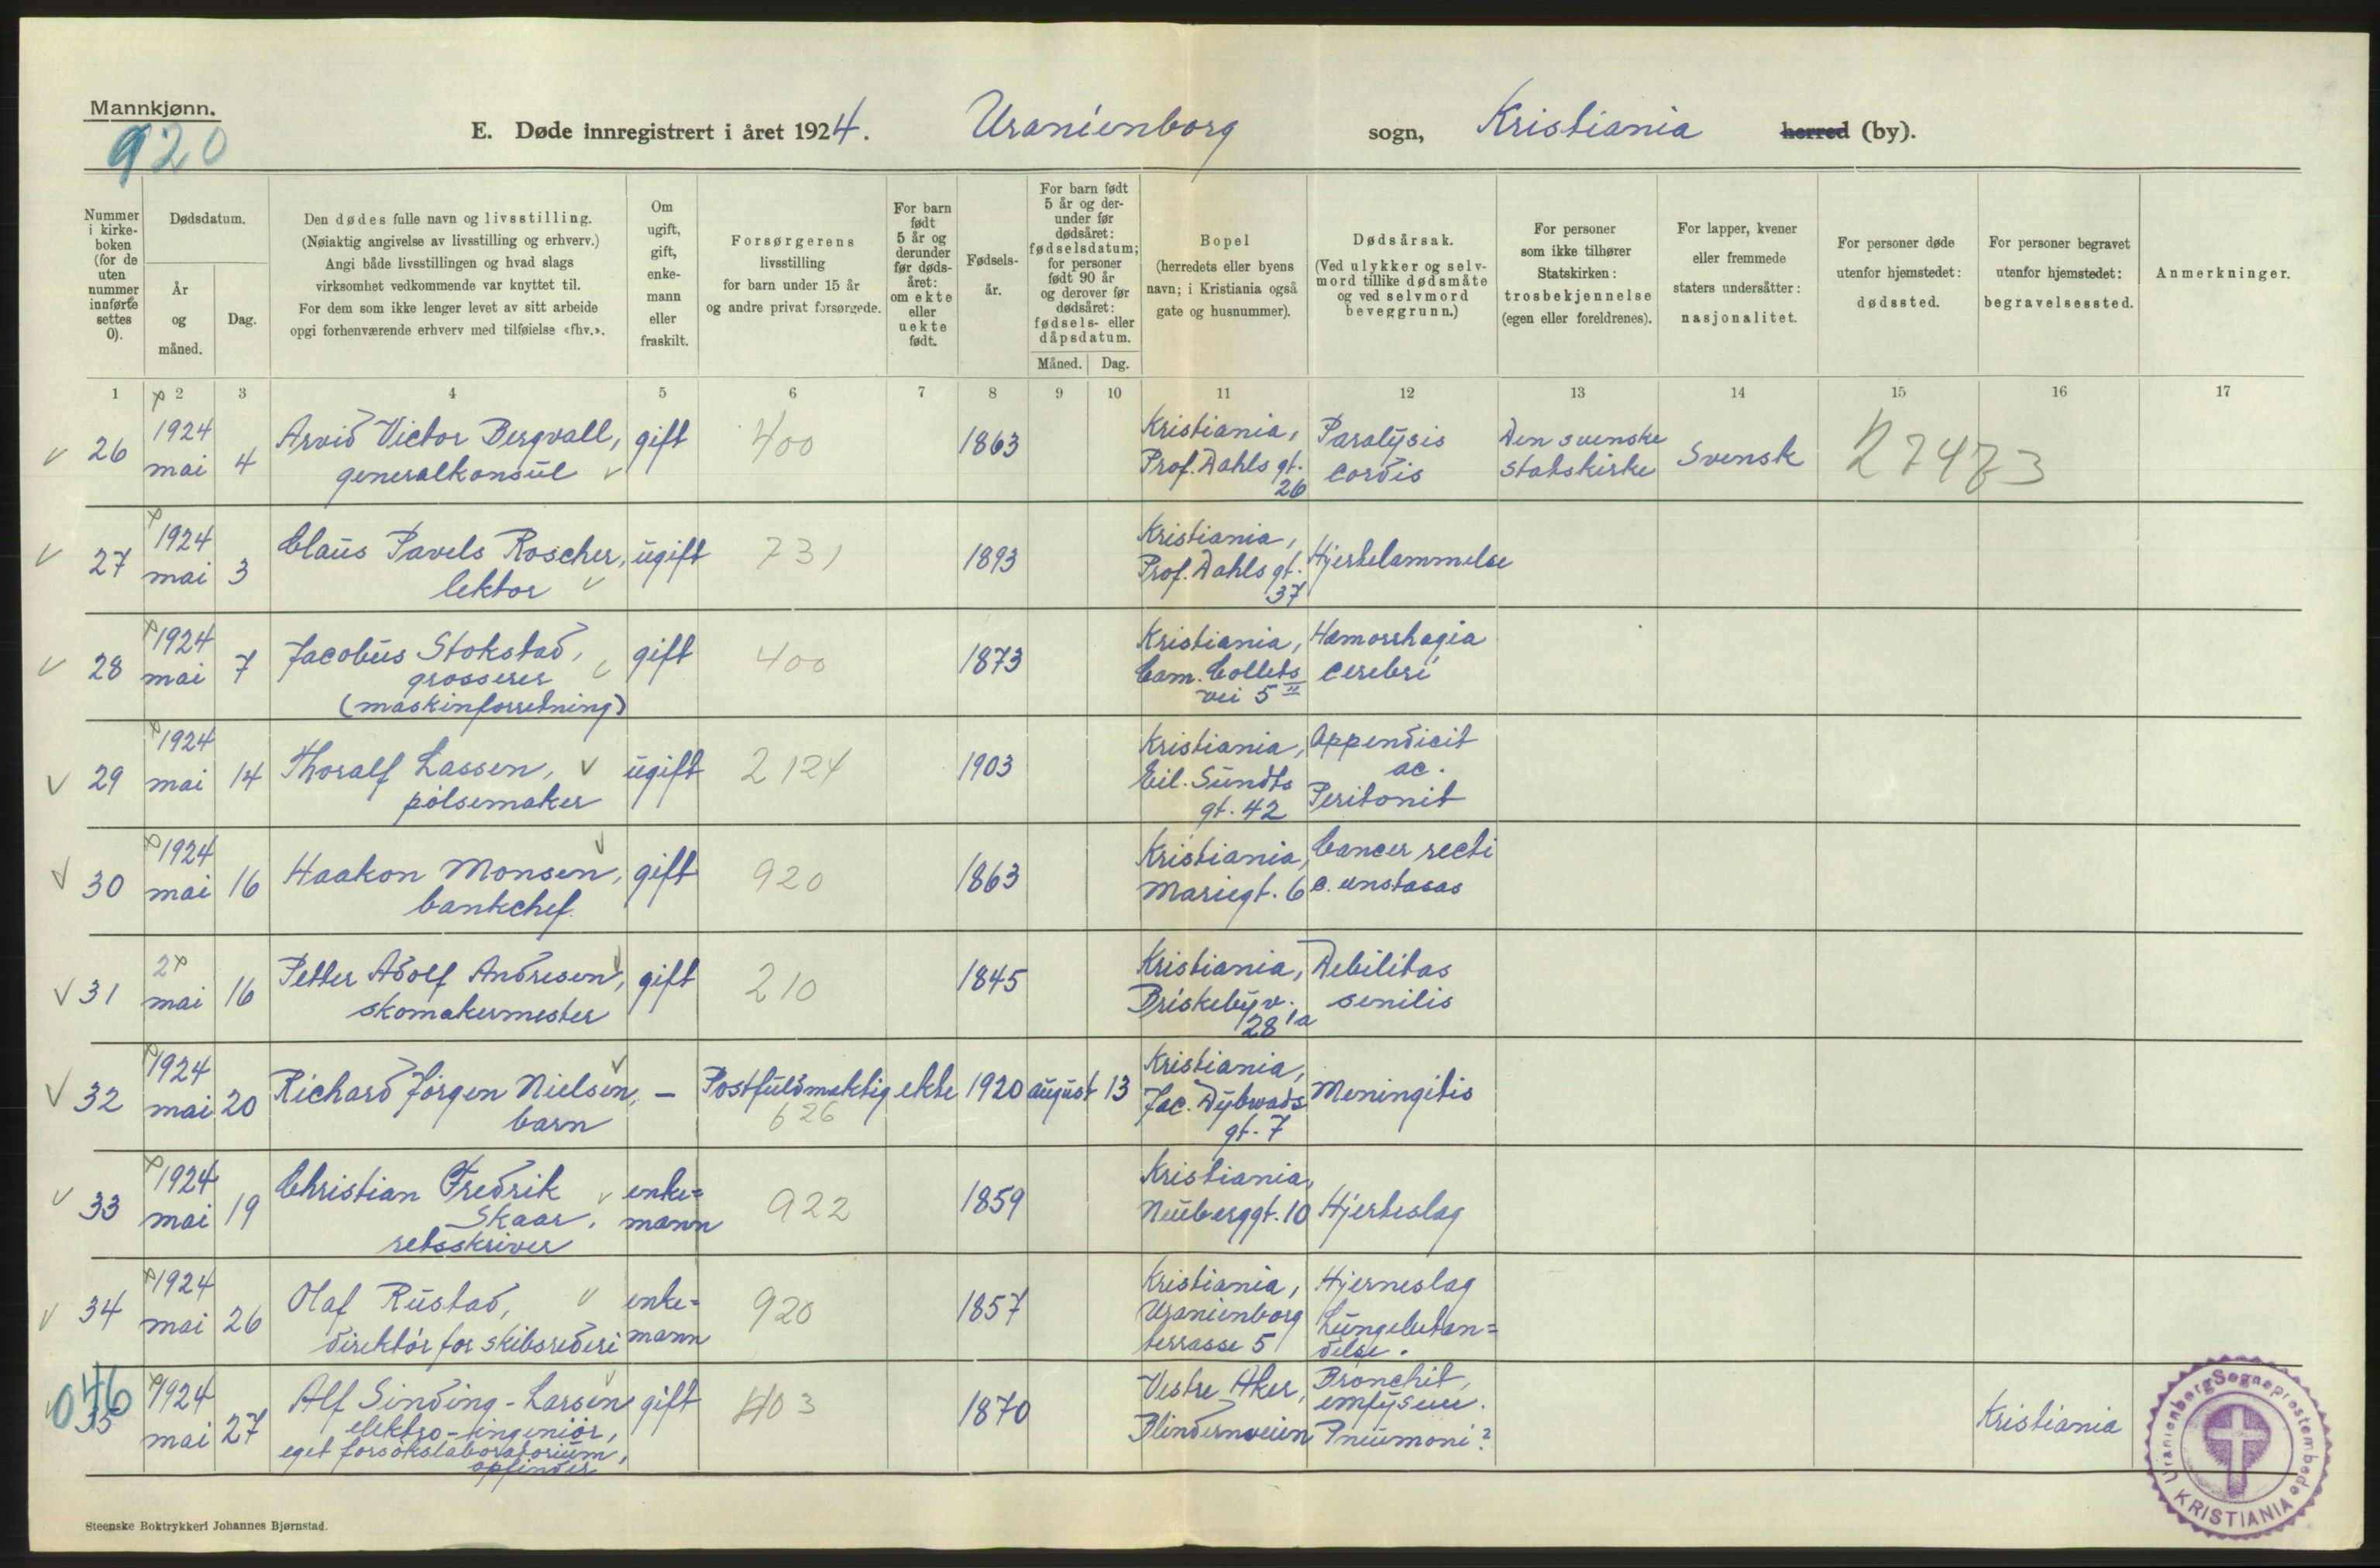 Mannkjønn.
920
E. Døde innregistrert i året 1924. Uranienborg sogn, Kristiania herred (by).
Nummer i kirkeboken (for de uten nummer innførte settes 0).
Dødsdatum.
År og måned.
Dag.
Den dødes fulle navn og livsstilling.
(Nøiaktig angivelse av livsstilling og erhverv.)
Angi både livsstillingen og hvad slags
virksomhet vedkommende var knyttet til.
For dem som ikke lenger levet av sitt arbeide
opgi forhenværende erhverv med tilføielse «fhv.».
Om ugift, gift, enkemann eller fraskilt.
Forsørgerens
livsstilling
for barn under 15 år
og andre privat forsørgede.
For barn født 5 år og derunder før dødsåret: om ekte eller uekte født.
Fødselsår.
For barn født 5 år og derunder før dødsåret: fødselsdatum; for personer født 90 år og derover før dødsåret: fødsels- eller dåpsdatum.
Måned. Dag.
Bopel
(herredets eller byens
navn; i Kristiania også
gate og husnummer).
Dødsårsak.
(Ved ulykker og selvmord tillike dødsmåte
og ved selvmord
beveggrunn.)
For personer
som ikke tilhører
Statskirken:
trosbekjennelse
(egen eller foreldrenes).
For lapper, kvener
eller fremmede
staters undersåtter:
nasjonalitet.
For personer døde
utenfor hjemstedet:
dødssted.
For personer begravet
utenfor hjemstedet:
begravelsessted.
Anmerkninger.
1 2 3 4 5 6 7 8 9 10 11 12 13 14 15 16 17
26 1924 mai 4 Arvid Victor Bergvall, generalkonsul gift 400 1863 Kristiania, Prof. Dahls gt. 26 Paralysis cordis Den svenske statskirke Svensk 27473
27 1924 mai 3 Claus Pavels Roscher, lektor ugift 731 1893 Kristiania, Prof. Dahls gt. 37 Hjertelammelse
28 1924 mai 7 Jacobus Stokstad, grosserer (maskinforretning) gift 400 1873 Kristiania, Cam. Colletts vei 5 II Hæmorrhagia cerebri
29 1924 mai 14 Thoralf Lassen, pølsemaker ugift 2124 1903 Kristiania, Eil. Sundts gt. 42 Appendicit ac. Peritonit
30 1924 mai 16 Haakon Monsen, bankchef gift 920 1863 Kristiania, Mariegt. 6 Cancer recti c.
31 mai 16 Petter Adolf Andresen, skomakermester gift 210 1845 Kristiania, Briskebyv. 28 Debilitas senilis
32 1924 mai 20 Richard Jørgen Nielsen, barn – Postfuldmæktig 626 ekte 1920 august 13 Kristiania, Jac. Dybwads gt. 7 Meningitis
33 1924 mai 19 Christian Fredrik Skaar, retsskriver enke=mann 922 1859 Kristiania, Neuberggt. 10 Hjerteslag
34 1924 mai 26 Olaf Rustad, direktør for skibsrederi enke=mann 920 1857 Kristiania, Uranienborg terrasse 5 Hjerneslag Lungebetæn=delse.
046
35 1924 mai 27 Alf Sinding-Larsen elektro-ingeniør, eget forsøkslaboratorium, opfinder gift 403 1870 Vestre Aker, Blindernveien Bronchit, Pneumoni? Kristiania
Uranienborg Sogneprestembede KRISTIANIA
Steenske Boktrykkeri Johannes Bjørnstad.